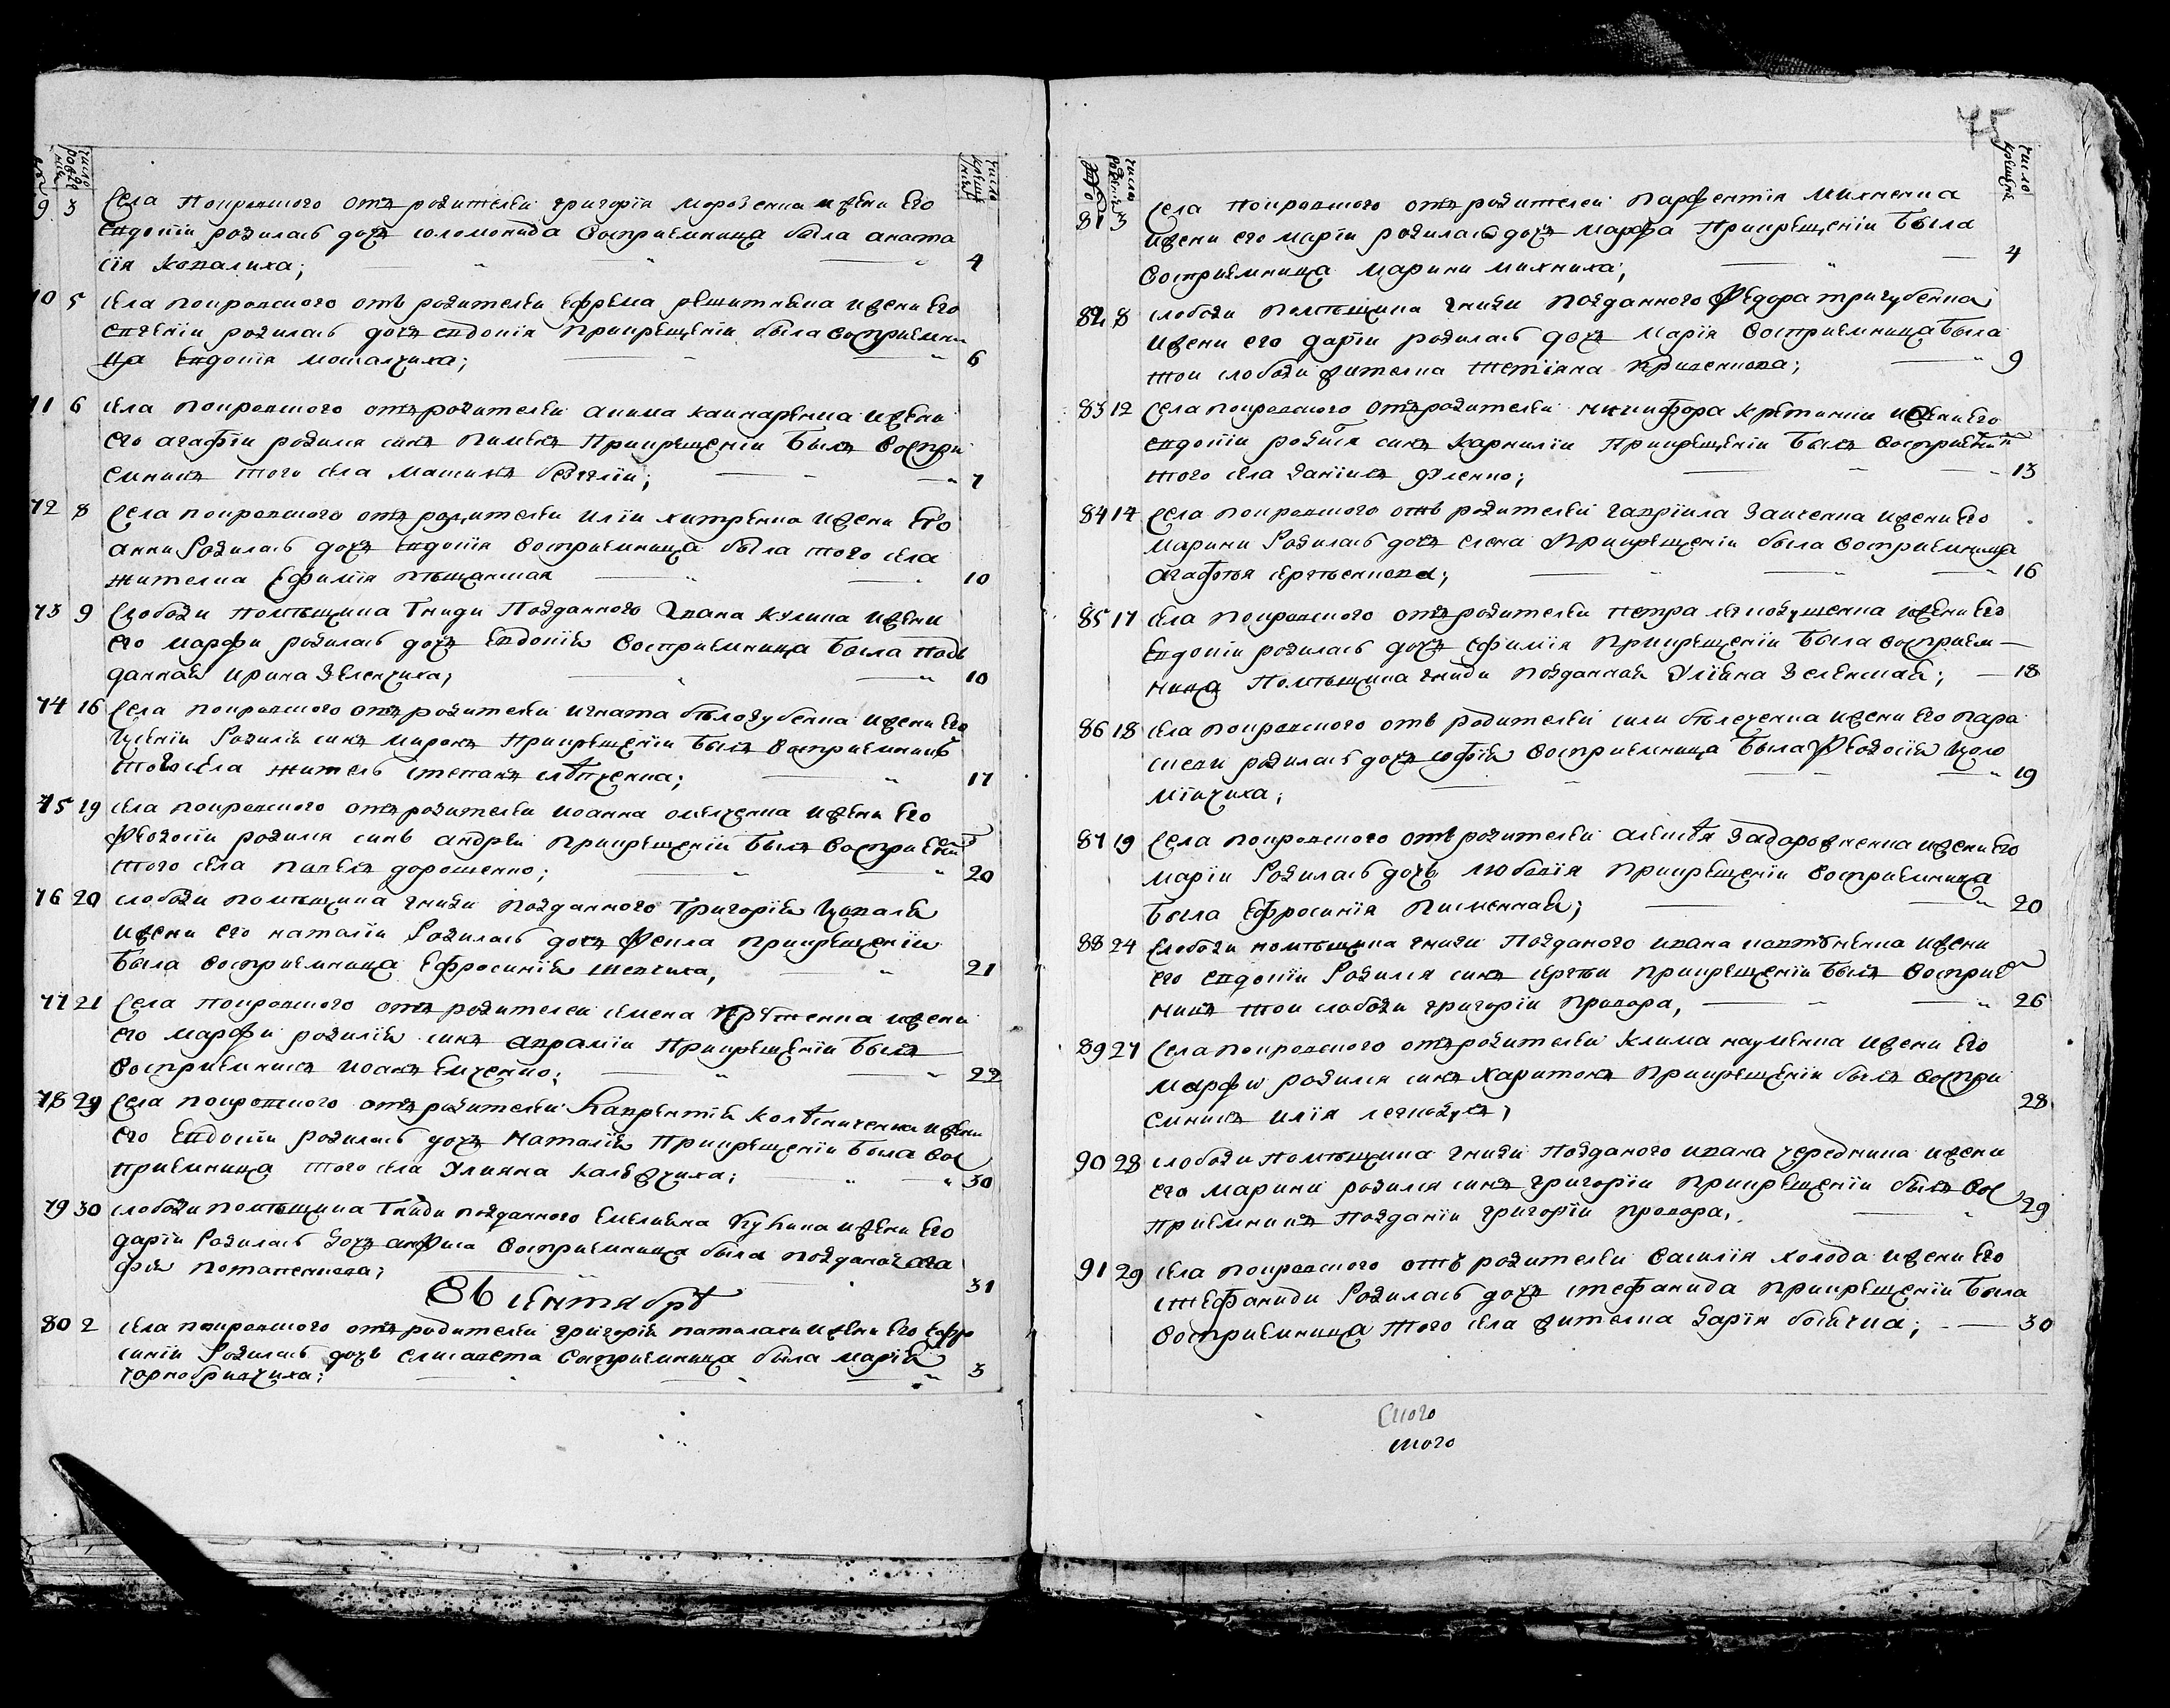 число рожде нія
числа креще нія
9 3 села покровского отъ родителей григорія морозенка и жени Его
Евдокіи родилась дочъ соломонида Восприемница была анаста
сія Ковалиха; 4
10 5 села покровского отъ родителей Ефрема решитнека и жени Его
Евгеніи родилась дочъ евдокія При крещеніи была восприемни
ца Евдокія москалчиха; 6
11 6 села покровского отъ родителей акима каинаренка и жени
его агафіи родился синъ Пименъ При крещеніи былъ Воспри
емникъ того села 7
72 8 села покровского отъ родителей иліи хитренка и жени Его
анни Родилась дочъ Евдокія восприемница была того села
жителка Ефимія пѣщанская 10
73 9 Слободи помѣщика Гниди Подданного Ивана кулика и жени
его марфи родилась дочъ Евдокія Восприемница была подъ
данная ирина Зеленчиха; 10
74 16 села покровского отъ родителей игната бѣлогубенка и жени Его
Родился синъ миронъ При крещеніи былъ Восприемникъ
того села житель степанъ слѣпченка; 17
75 19 села покровского отъ родителей иоанна омелченка и жени Его
феодосіи родился синъ андрей При крещеніи былъ Восприемни
того села павелъ дорошенко; 20
76 20 слободи помѣщика гниди подданного Григорія Цоваля
и жени его наталіи Родилась дочъ фекла При крещеніи
была восприемница Ефросинія шевчиха, 21
77 21 Села покровского отъ родителей семена и жени
его марфи родился синъ авраміи При крещеніи былъ
восприемникъ иоанъ Емченко; 22
78 29 села покровского отъ родителей Лаврентія колѣсниченка и жени
его Евдокіи родилась дочъ наталія При крещеніи была вос
приемница того села Уляна калюжчиха; 30
79 30 слободи помѣщика Гниди подданного Емелияна и жени Его
даріи Родилась дочъ анфиса восприемница была подданая ага
фія потапенкова; 31
Въ сентябрѣ
80 2 села покровского отъ родителей григорія паталахи и жени Его Ефро
синіи Родилась дочъ елисавета восприемница была марія
чорнобривчиха; 3
45
число рожденія
число крещені
81 3 села покровского отъ родителей парфентія михненка
и жени его маріи родилась дочъ марфа При крещеніи была
восприемница марина михниха; 4
82 8 слободи помѣщика гниди подданного федора тригубенка
и жени его даріи родилась дочъ марія восприемница была
тои слободи жителка тетіяна кривенкова; 9
83 12 села покровского отъ родителей никифора и жени Его
евдокіи родился синъ карниліи При крещеніи былъ восприемни
того села даніилъ 13
84 14 села покровского отъ родителей гавріила заиченка и жени Его
марини Родилась дочъ елена При крещеніи была восприемница
агафія сергѣенкова; 16
85 17 села покровского отъ родителей петра легкодушенка и жени Его
Евдокіи родилась дочъ ефимія При крещеніи была восприем
ница помѣщика гниди подданная Улияна зеленская; 18
86 18 села покровского отъ родителей сили бѣлеченка и жени Его пара
скеви родилась дочъ софія восприемница была феодосія
19
87 19 села покровского отъ родителей алексѣя задарожненка и жени Его
маріи Родилась дочъ любовія При крещеніи восприемница
была Ефросинія писменная; 20
88 24 слободи помѣщика гниди Подданого ивана и жени
его евдокіи Родился синъ сергѣи При крещеніи былъ воспріе
никъ тои слободи григоріи провора, 26
89 27 села покровского отъ родителей клима науменка и жени Его
марфи родился синъ харитонъ При крещеніи былъ воспри
емникъ илія 28
90 28 слободи помѣщика гниди Подданого ивана чередника и жени
его марини родился синъ григоріи При крещеніи былъ вос
приемникъ подданіи григоріи провора, 29
91 29 села покровского отъ родителей василія холода и жени Его
стефаниди Родилась дочъ стефанида При крещеніи была
восприемница того села жителка дарія 30